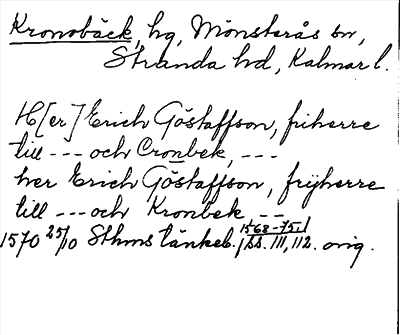 Kronobäck, hg, Mönsterås sn,
Stranda hd, Kalmar l.
H[er] Erich Göstaffson, friherre
till --- och Cronbek, ---
her Erich Göstaffson, frijherre
till --- och Kronbek, ---
1570 25/10 Sthms tänkeb. 1568-75, ss. 111, 112. orig.